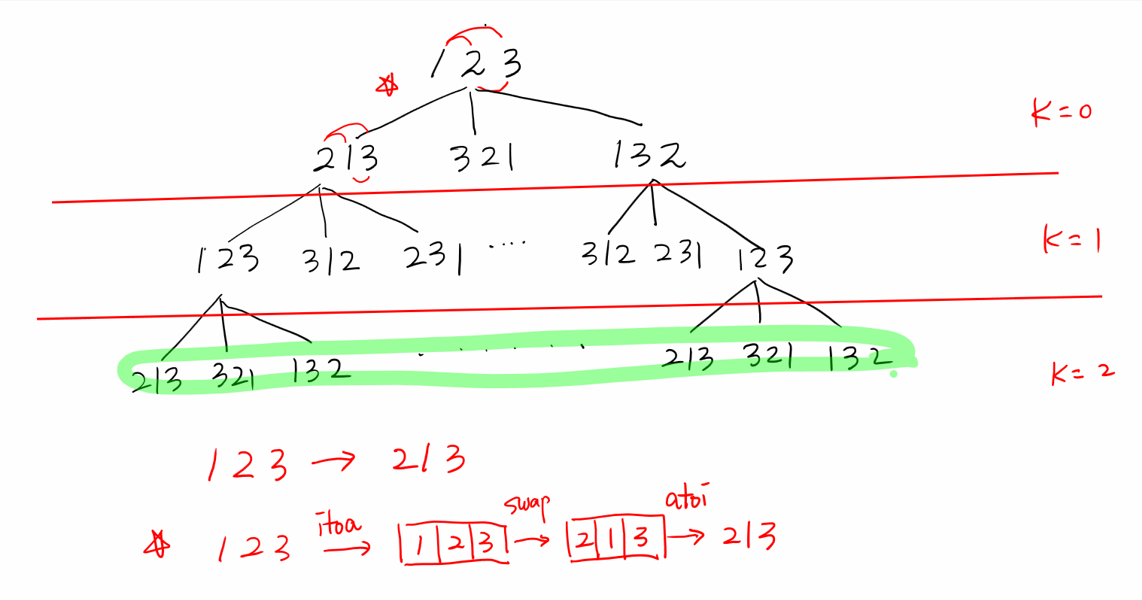 1 2 3
K=0
213 321 132
K=1
123 312 231 .... 312 231 123
213 321 132 . . . . . . . 213 321 132
K=2
1 2 3 → 213
123 itoa → 1 2 3 swap → 2 1 3 atoi → 213